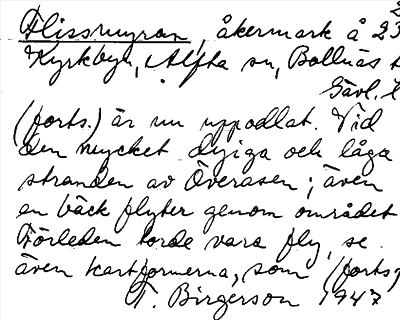 Flissmyran, åkermark å 23
Kyrkbyn, Alfta sn, Bollnäs
Gävl. l
(forts.) är nu uppodlat. Vid
den mycket dyiga och låga
stranden av Överåsen; även
en bäck flyter genom området
Förleden torde vara fly, se
även kartformerna, som (forts
T. Birgerson 1947